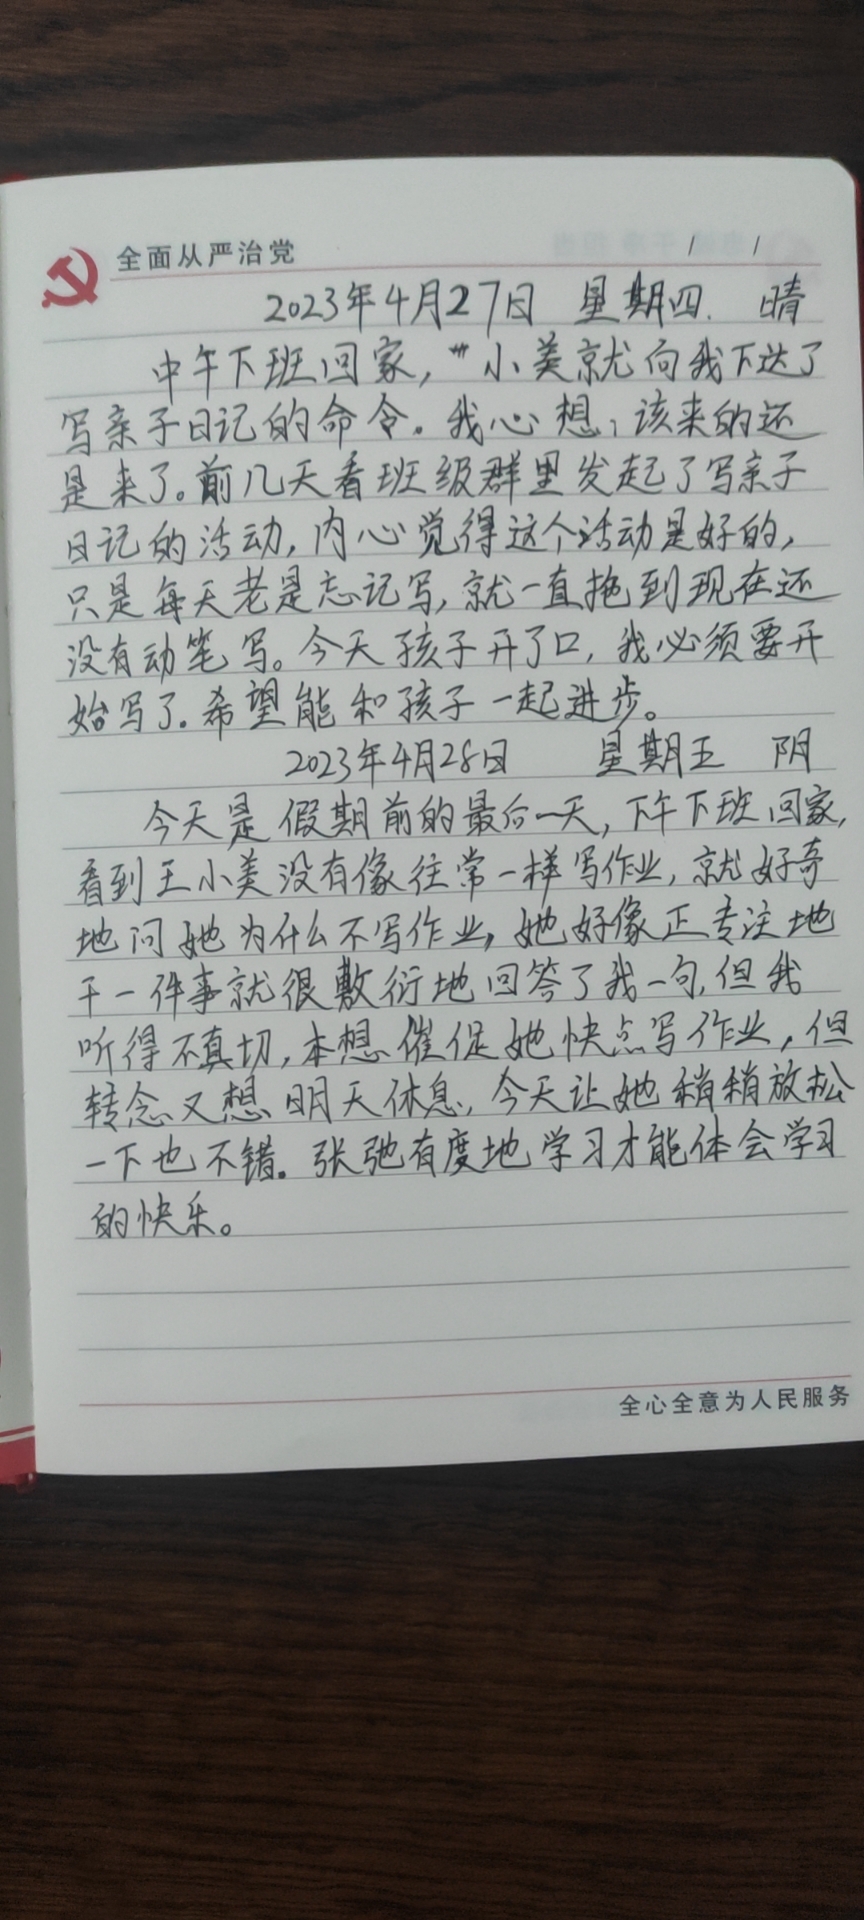 全面从严治党 / /
2023年4月27日 星期四. 晴
中午下班回家，小美就向我下达了
写亲子日记的命令。我心想，该来的还
是来了。前几天看班级群里发起了写亲子
日记的活动，内心觉得这个活动是好的，
只是每天老是忘记写，就一直拖到现在还
没有动笔写。今天孩子开了口，我必须要开
始写了。希望能和孩子一起进步。
2023年4月28日 星期五 阴
今天是假期前的最后一天，下午下班回家，
看到王小美没有像往常一样写作业，就好奇
地问她为什么不写作业，她好像正专注地
干一件事就很敷衍地回答了我一句，但我
听得不真切，本想催促她快点写作业，但
转念又想明天休息，今天让她稍稍放松
一下也不错。张弛有度地学习才能体会学习
的快乐。
全心全意为人民服务